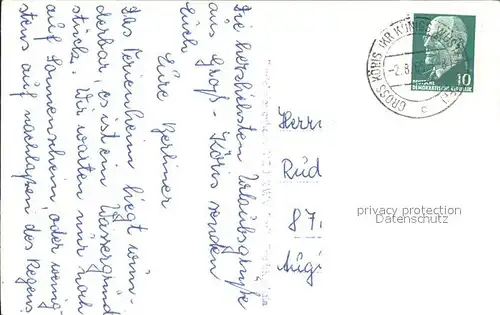 Die herzlichsten Urlaubsgrüße
aus Groß-Köris senden
Euch
Eure Berliner
Das Ferienheim liegt wun-
derbar, es ist ein Wassergrund
stück. Wir warten nur noch
auf Sonnenschein, oder wenig
stens auf nachlaßen des Regens
GROSS KÖRIS (KR KÖNIGS WUST
-2.8.6
c
10
DEUTSCHE
DEMOKRATISCHE REPUBLIK
Herr
Rud
87
Augi
privacy protection
Datenschutz